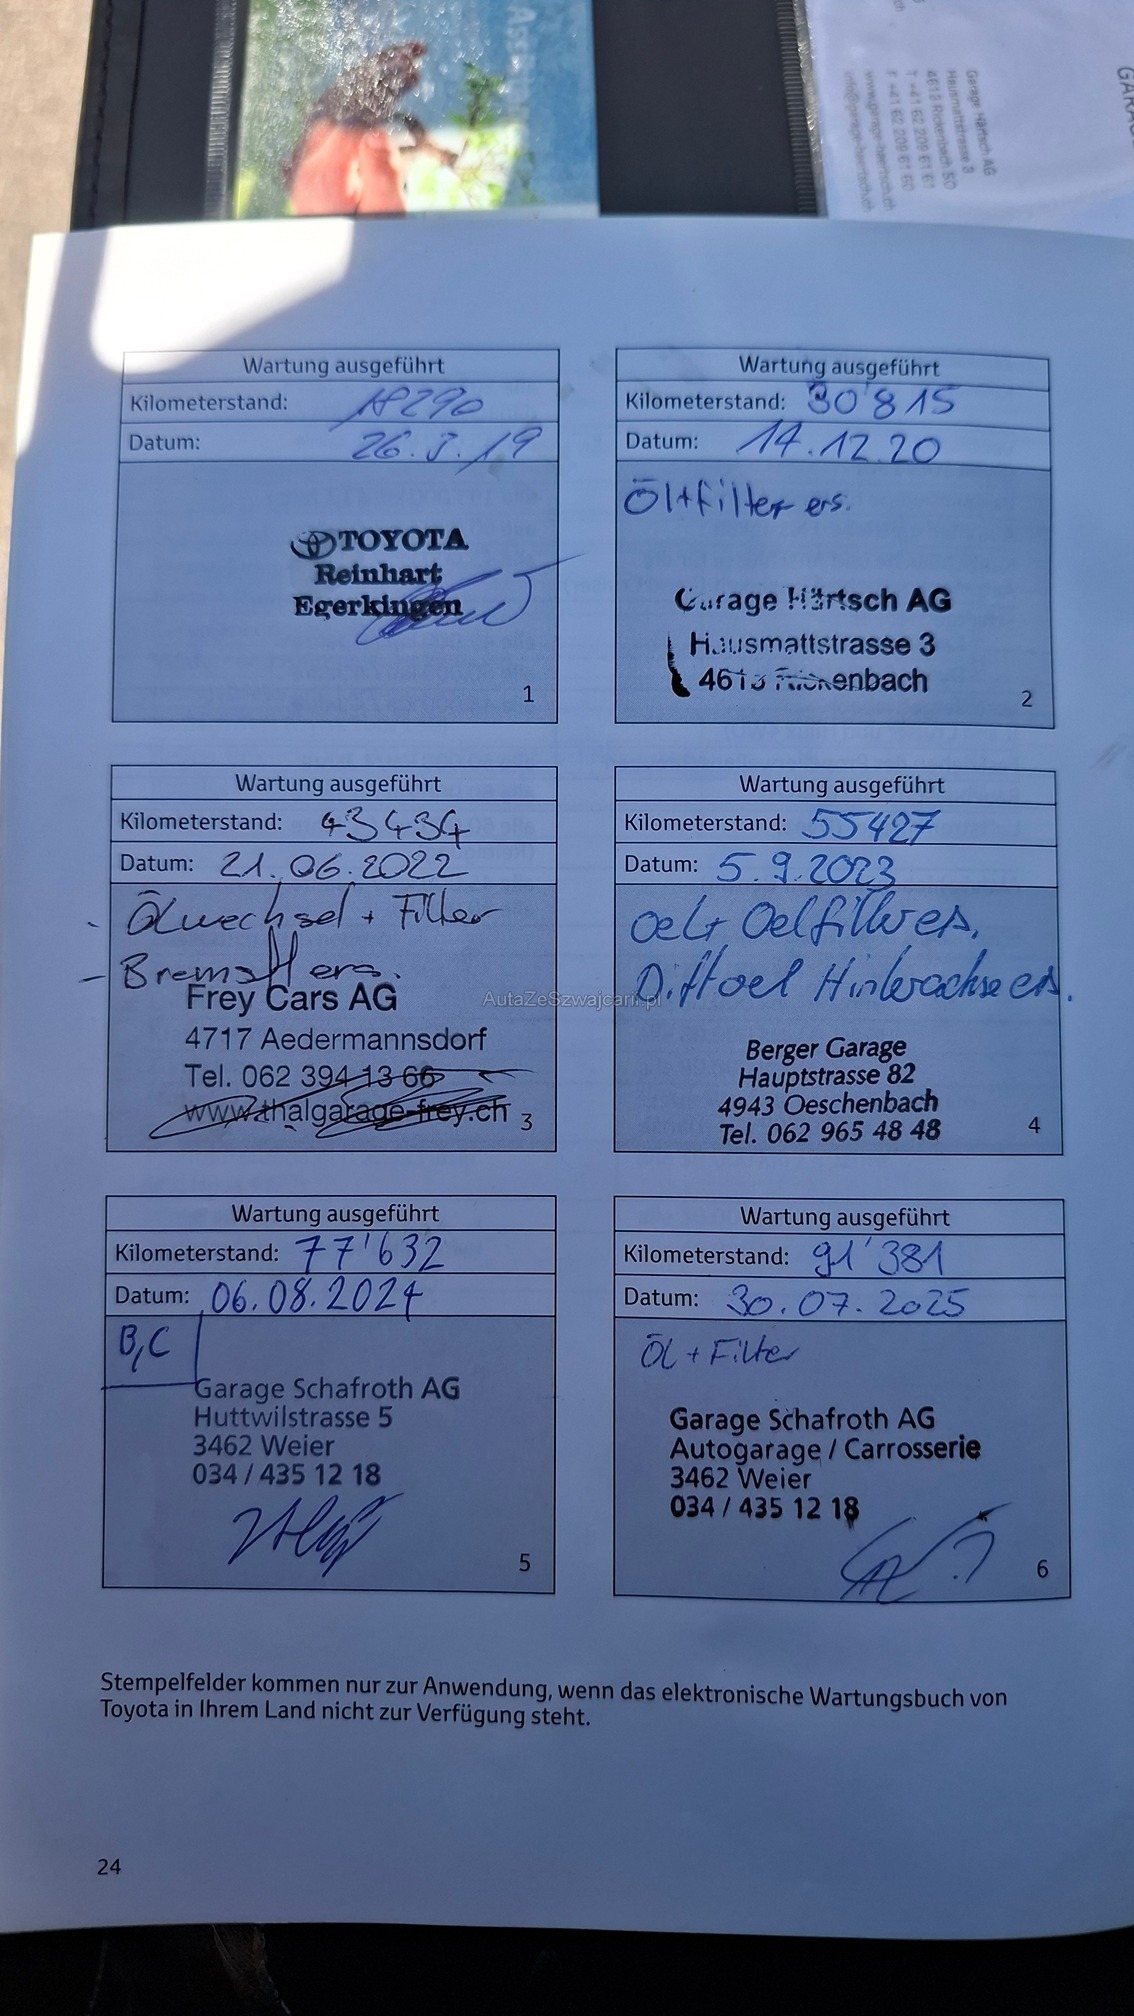 Garage Härtsch AG
Hausmattstrasse 3
4613 Rickenbach SO
T +41 62 209 61 61
F +41 62 209 61 60
www.garage-haertsch.ch
info@garage-haertsch.ch
Wartung ausgeführt
Kilometerstand: 18290
Datum: 26.3.19
TOYOTA
Reinhart
Egerkingen
1
Wartung ausgeführt
Kilometerstand: 30'815
Datum: 14.12.20
Öl+Filter ers.
Garage Härtsch AG
Hausmattstrasse 3
4613 Rickenbach
2
Wartung ausgeführt
Kilometerstand: 43434
Datum: 21.06.2022
- Ölwechsel + Filter
- Bremsfl ers.
Frey Cars AG
4717 Aedermannsdorf
Tel. 062 394 13 66
www.thalgarage-frey.ch
3
Wartung ausgeführt
Kilometerstand: 55427
Datum: 5.9.2023
Oel+ Oelfilter ers.
Diffoel Hinterachse ers.
AutaZeSzwajcarii.pl
Berger Garage
Hauptstrasse 82
4943 Oeschenbach
Tel. 062 965 48 48
4
Wartung ausgeführt
Kilometerstand: 77'632
Datum: 06.08.2024
B,C
Garage Schafroth AG
Huttwilstrasse 5
3462 Weier
034 / 435 12 18
5
Wartung ausgeführt
Kilometerstand: 91'381
Datum: 30.07.2025
Öl + Filter
Garage Schafroth AG
Autogarage / Carrosserie
3462 Weier
034 / 435 12 18
6
Stempelfelder kommen nur zur Anwendung, wenn das elektronische Wartungsbuch von
Toyota in Ihrem Land nicht zur Verfügung steht.
24